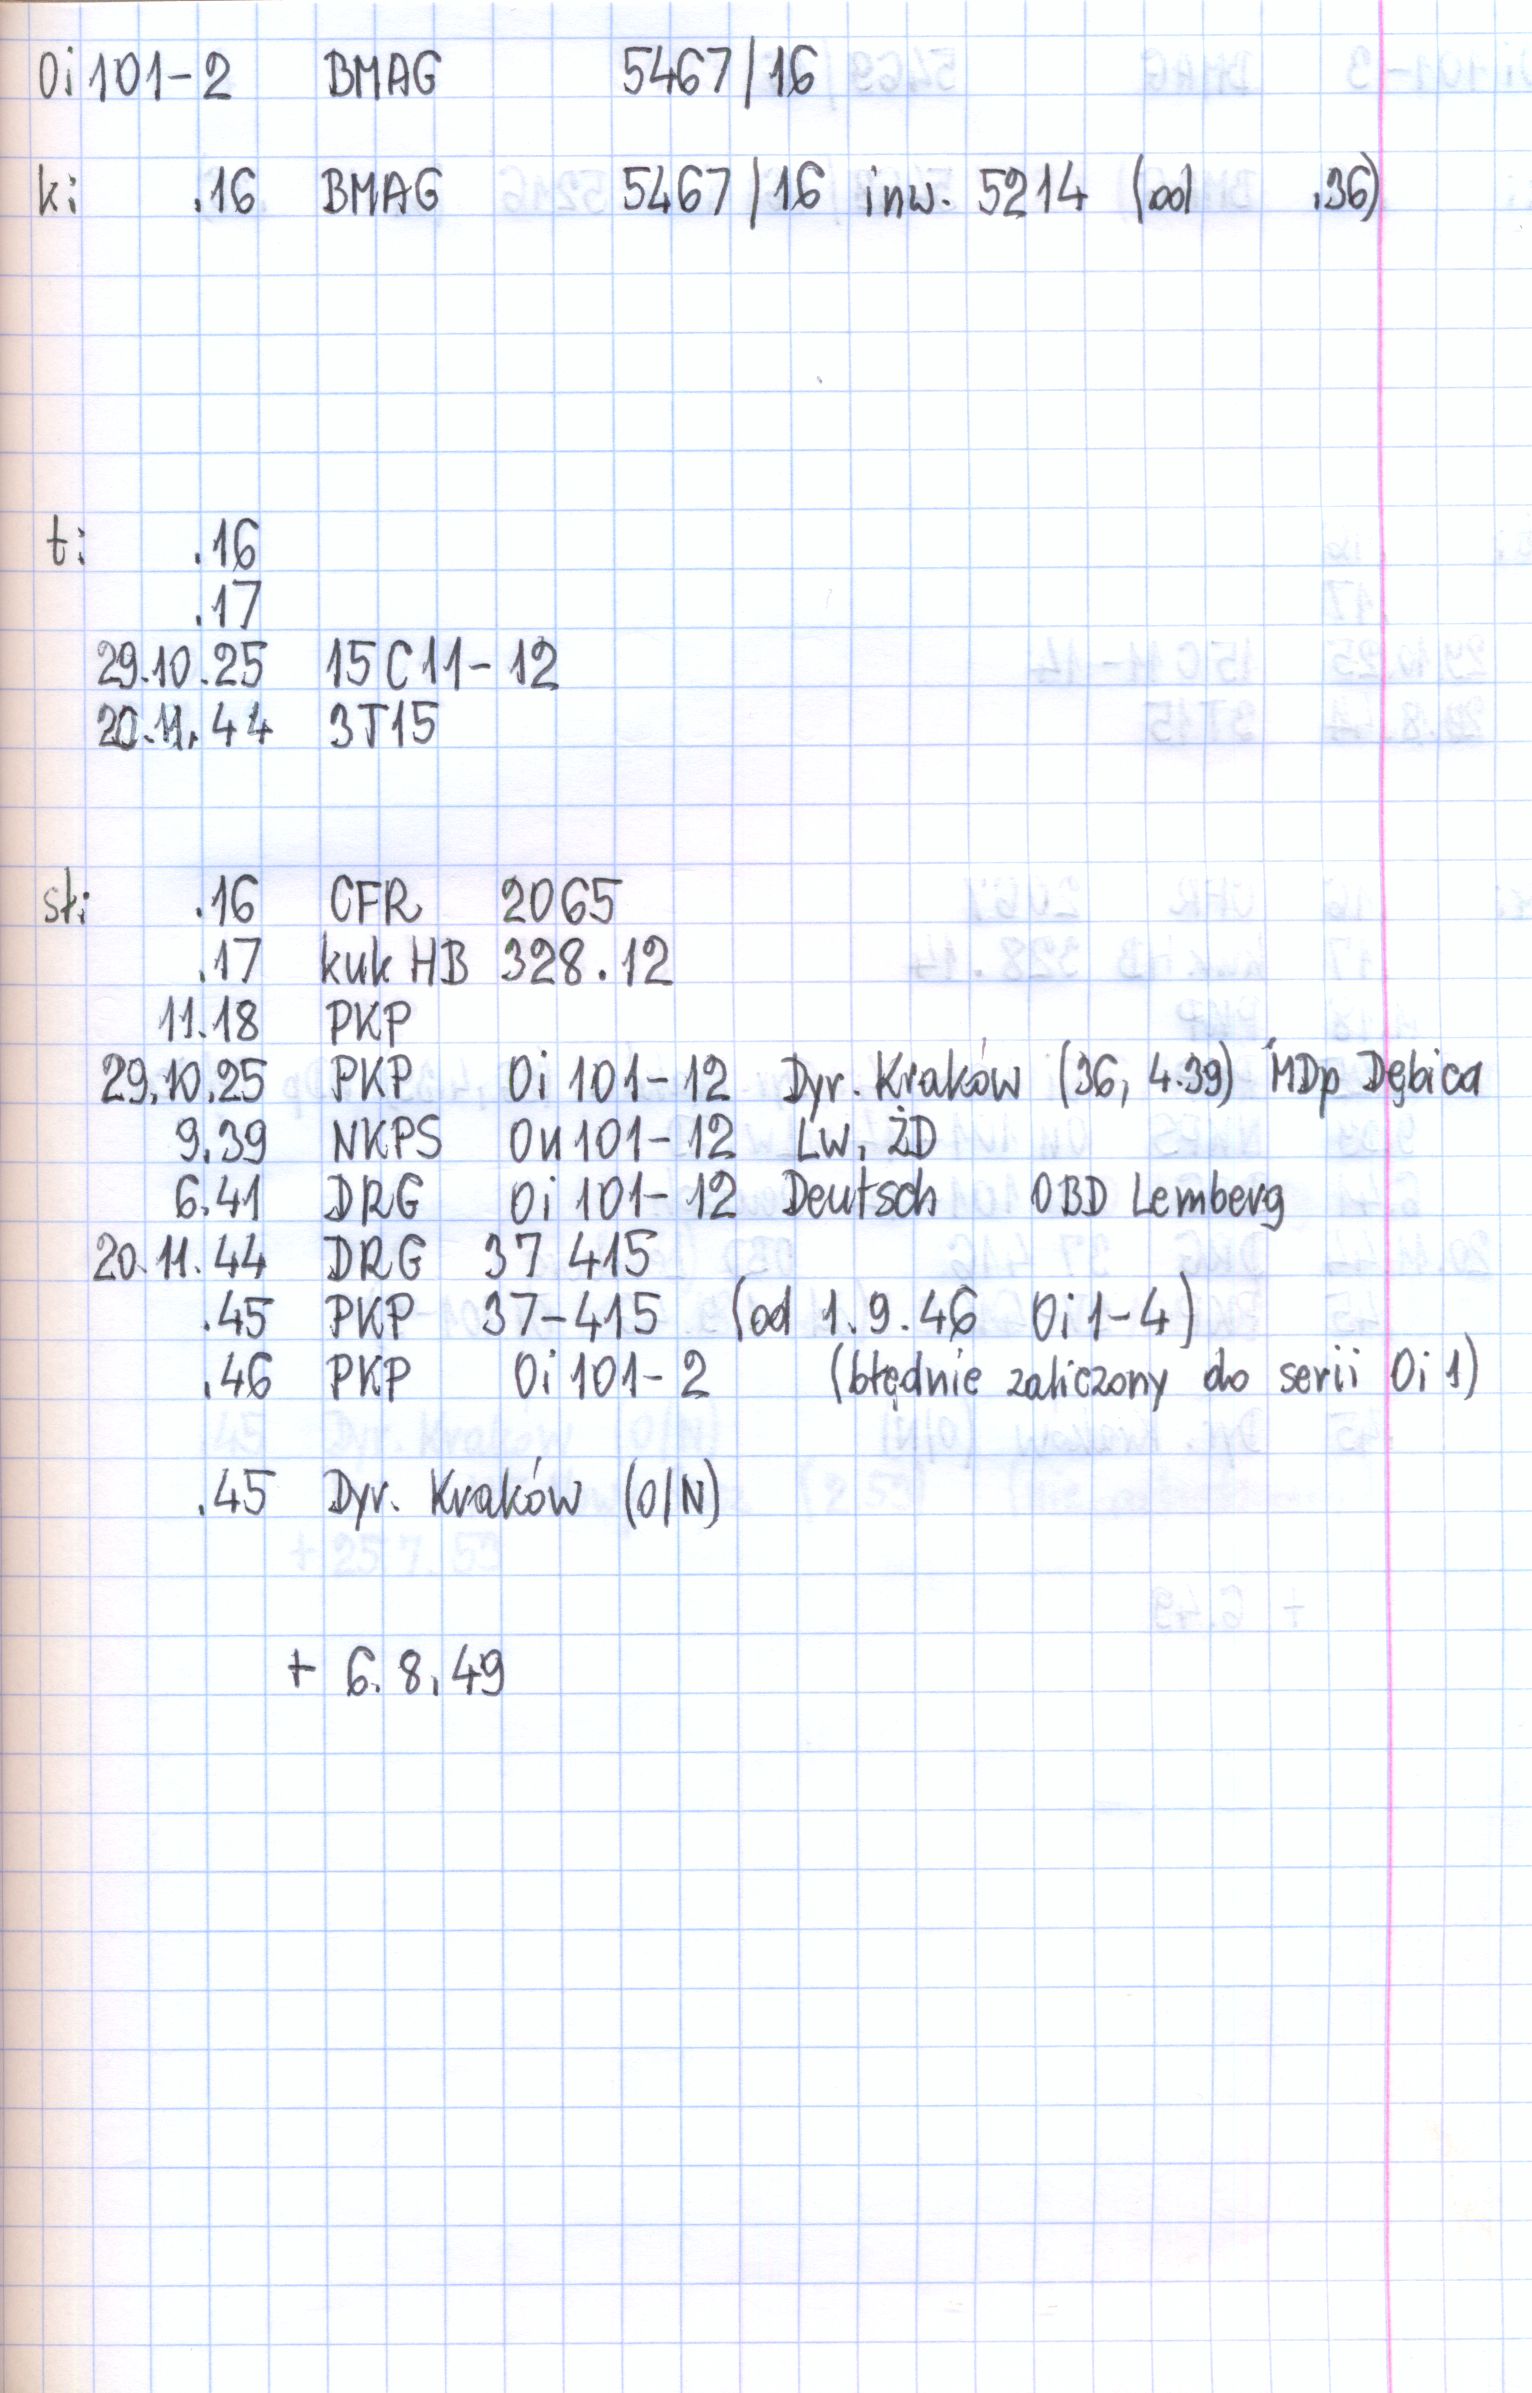 Oi 101-2 BMAG 5467/16
k: .16 BMAG 5467/16 inw. 5214 (od .36)
t: .16
.17
29.10.25 15C11-12
20.11.44 3T15
sł: .16 CFR 2065
.17 kuk HB 328.12
11.18 PKP
29.10.25 PKP Oi 101-12 Dyr. Kraków (36, 4.39) MDp Dębica
9.39 NKPS Ou 101-12 Lw. ŻD
6.41 DRG Oi 101-12 Deutsch OBD Lemberg
20.11.44 DRG 37 415
.45 PKP 37-415 (od 1.9.46 Oi 1-4)
.46 PKP Oi 101-2 (błędnie zaliczony do serii Oi 1)
.45 Dyr. Kraków (O/N)
+ 6.8.49